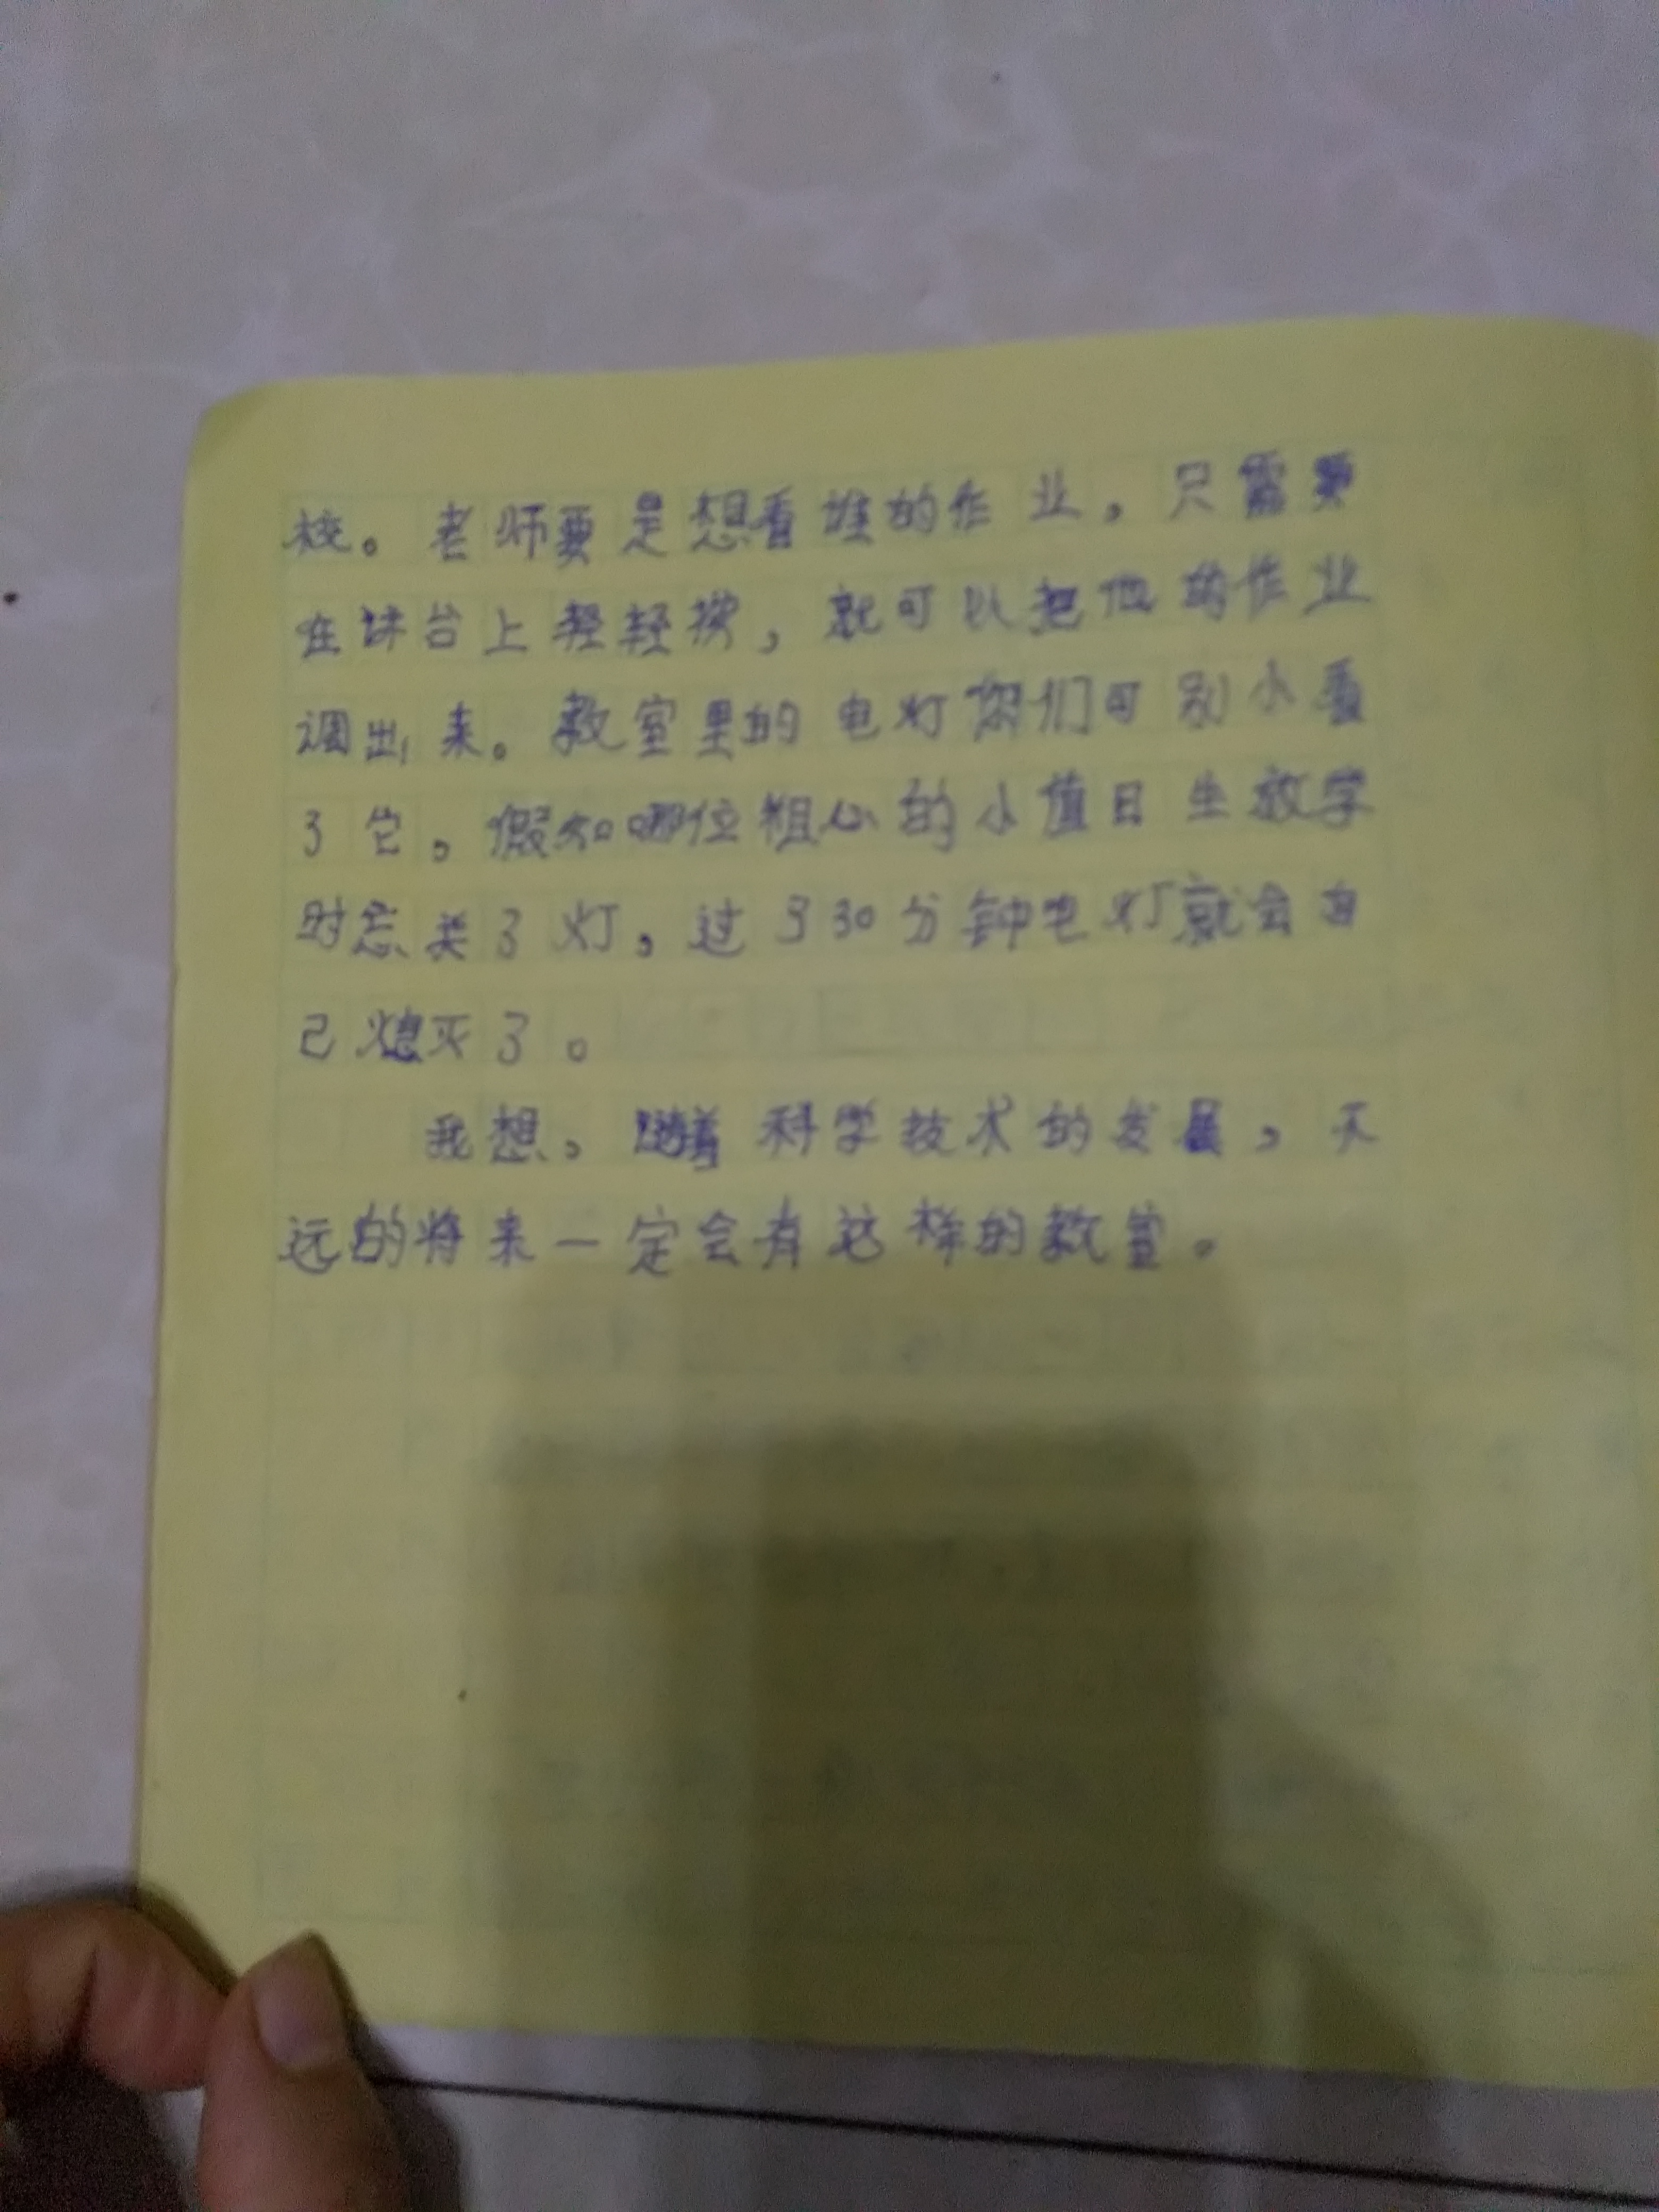 校。老师要是想看谁的作业，只需要
在讲台上轻轻按，就可以把他的作业
调出来。教室里的电灯你们可别小看
了它。假如哪位粗心的小值日生放学
时忘关了灯，过了30分钟电灯就会自
己熄灭了。
我想，随着科学技术的发展，不
远的将来一定会有这样的教室。